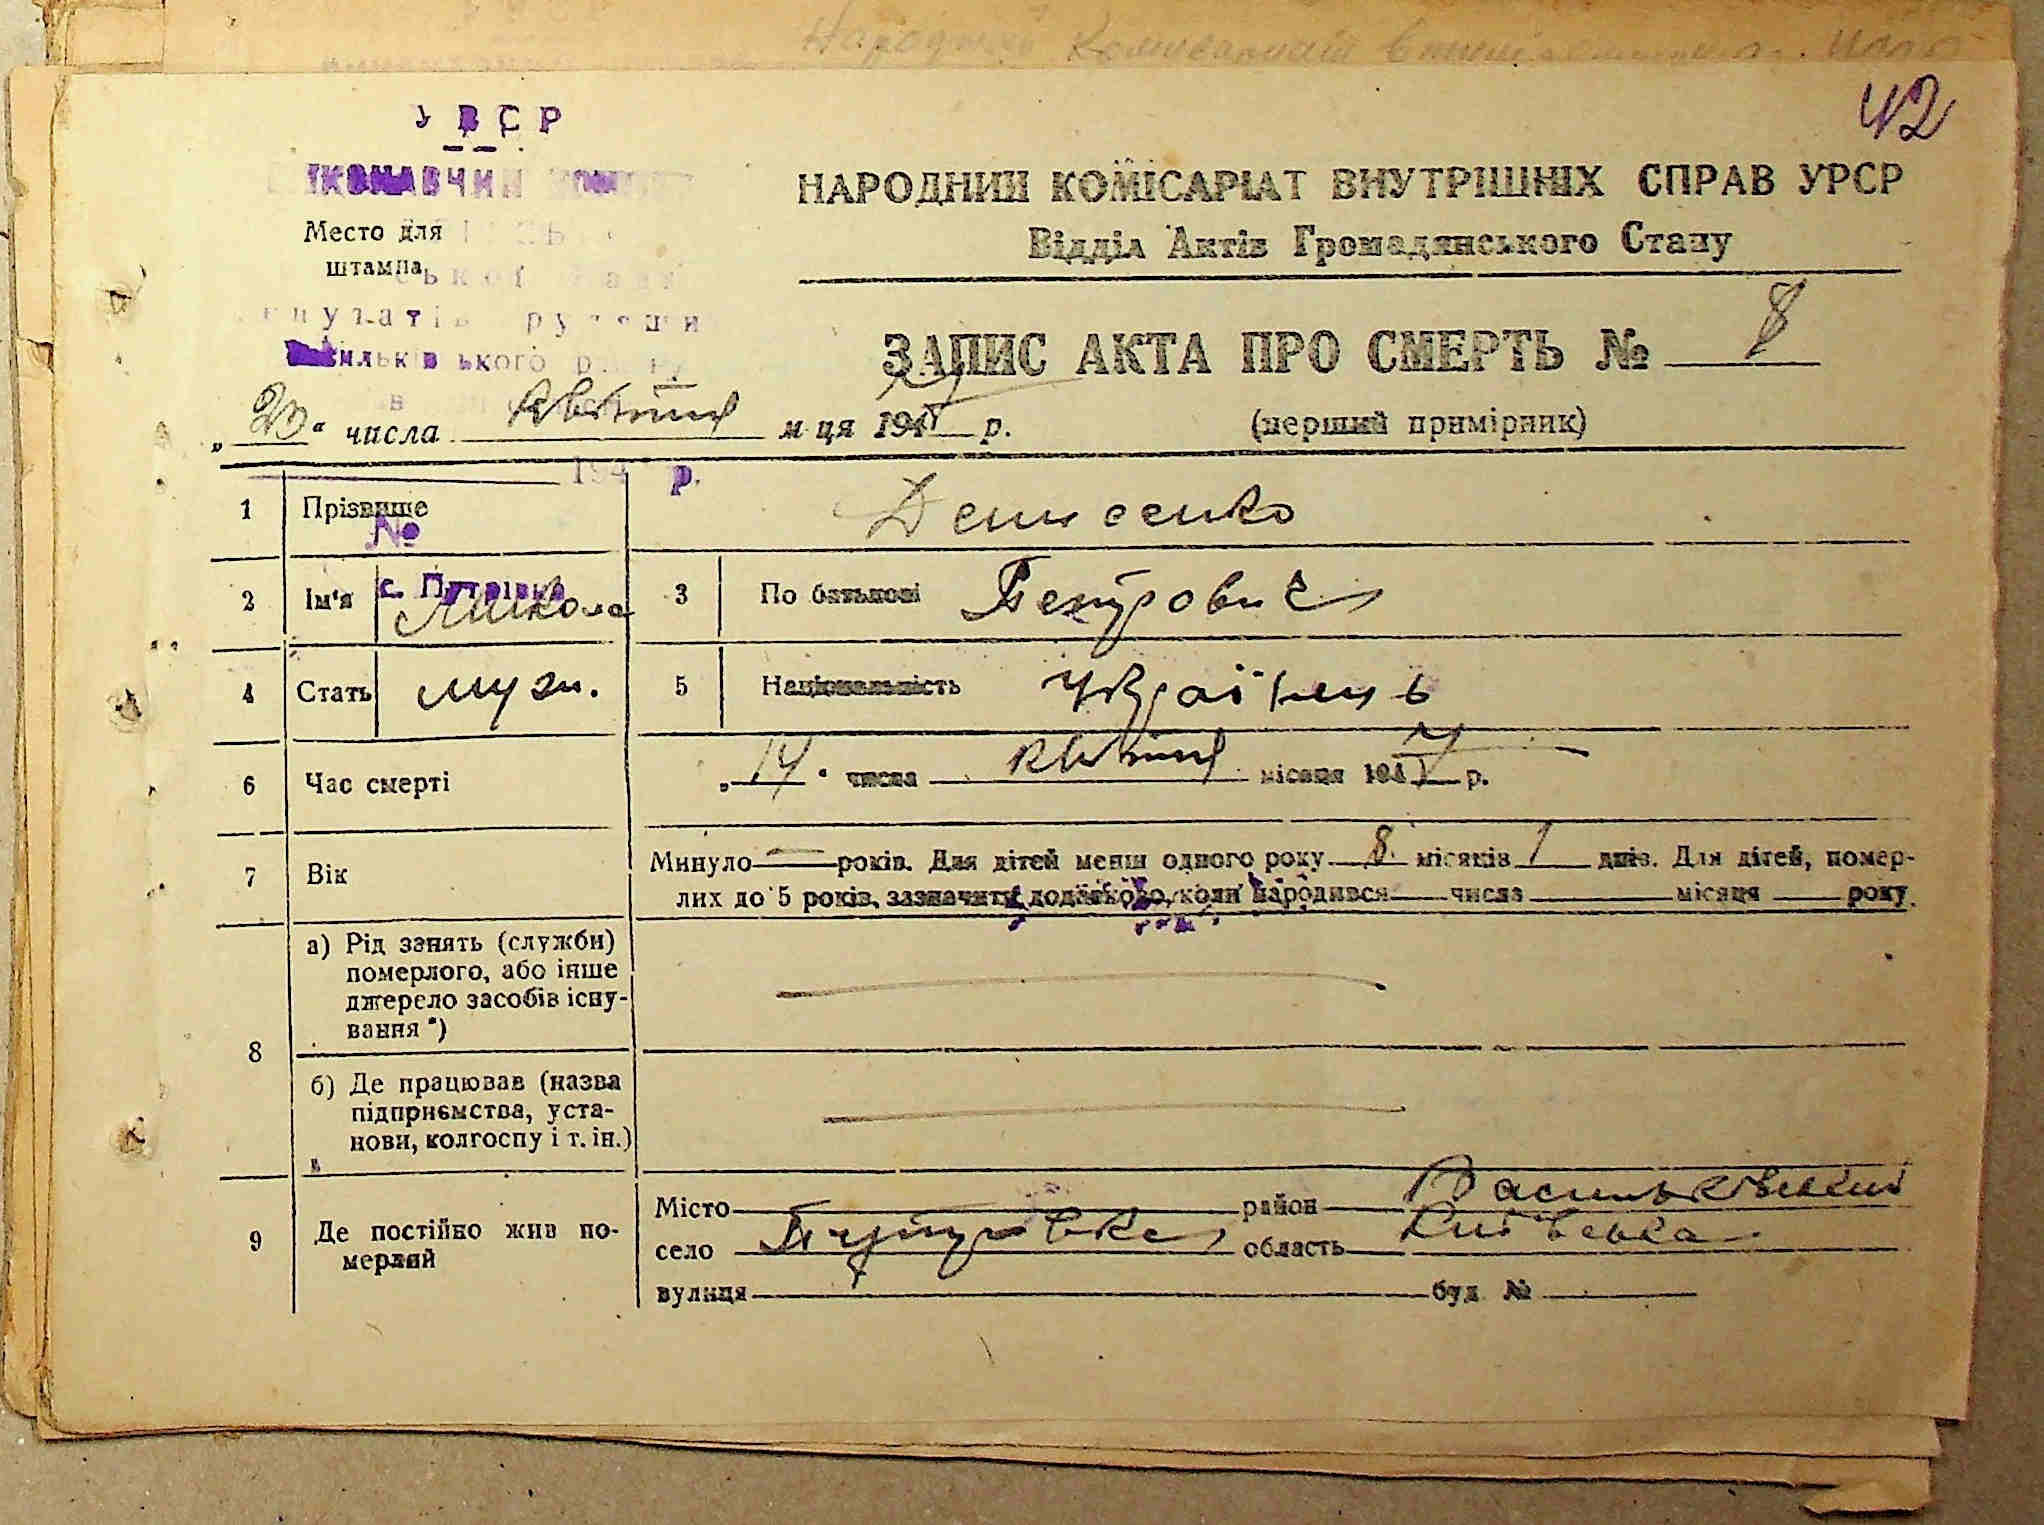 42
У В С Р
ІКОНАВЧИЙ
Место для
штампа
НАРОДНИЙ КОМІСАРІАТ ВНУТРІШНІХ СПРАВ УРСР
Відділ Актів Громадянського Стану
ЗАПИС АКТА ПРО СМЕРТЬ № 8
„20“ числа квітня м-ця 194 р.
(перший примірник)
194 р.
1 Прізвище Денисенко
№
с. Путрівка
2 Ім'я Микола 3 По батькові Петрович
4 Стать муж. 5 Національність Українець
6 Час смерті „14“ числа квітня місяця 194 р.
7 Вік Минуло — років. Для дітей менш одного року 8 місяців 1 днів. Для дітей, помер-
лих до 5 років, зазначити додатково, коли народився числа місяця року
8 а) Рід занять (служби)
померлого, або інше
джерело засобів існу-
вання *)
б) Де працював (назва
підприємства, уста-
нови, колгоспу і т. ін.)
9 Де постійно жив по-
мерлий
Місто район Васильківський
село Путрівка область Київська
вулиця буд. №